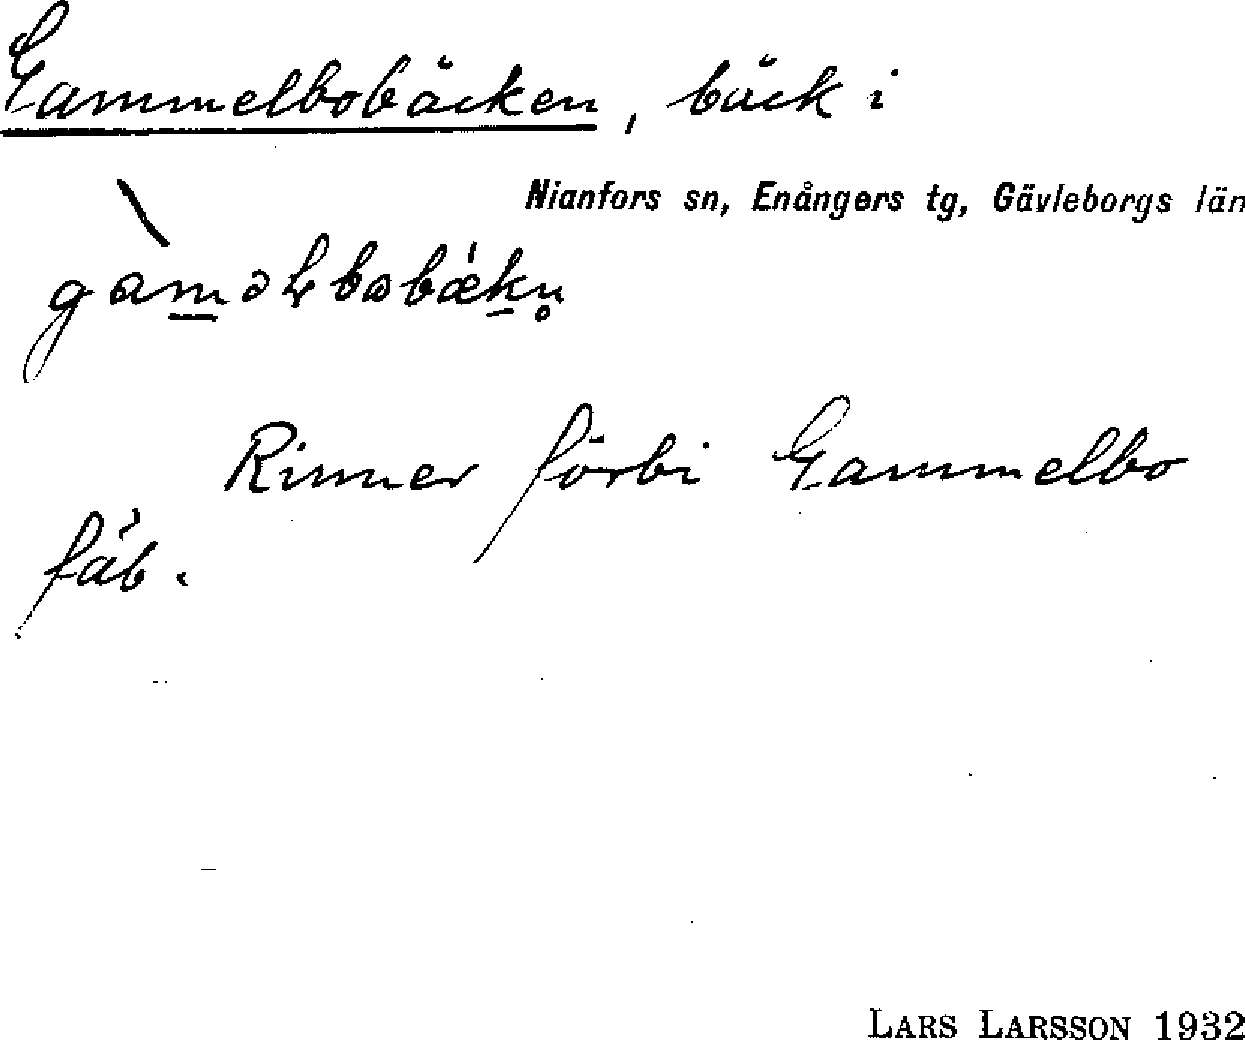 Gammelbobäcken, bäck i
Nianfors sn, Enångers tg, Gävleborgs län
Rinner förbi Gammelbo
fäb.
LARS LARSSON 1932